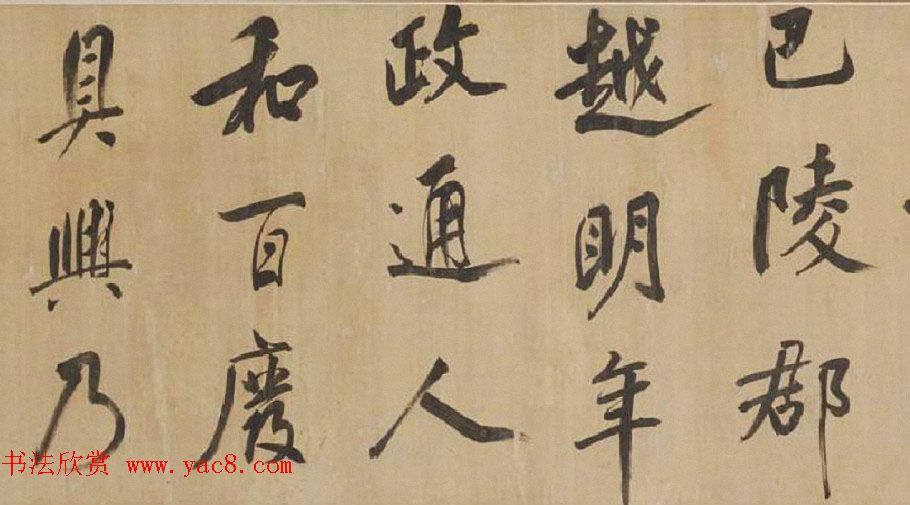 巴陵郡
越明年
政通人
和百廢
具興乃
书法欣赏 www.yac8.com